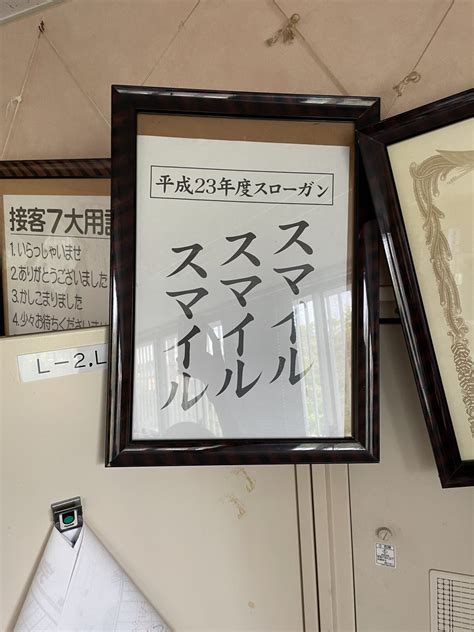 平成23年度スローガン
スマイル
スマイル
スマイル
接客7大用
1.いらっしゃいませ
2.ありがとうございました
3.かしこまりました
4.少々お待ちください
L-2,L